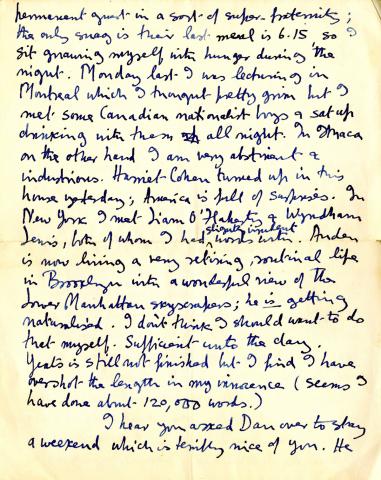 permanent guest in a sort of super-fraternity;
the only snag is their last meal is 6.15 so I
sit gnawing myself with hunger during the
night. Monday last I was lecturing in
Montreal which I thought pretty grim but I
met some Canadian nationalist boys & sat up
drinking with them all night. In Ithaca
on the other hand I am very abstinent &
industrious. Harriet Cohen turned up in this
house yesterday; America is full of surprises. In
New York I met Liam O'Flaherty & Wyndham
slightly virulent
Lewis, both of whom I had words with. Auden
is now living a very retiring, routinal life
in Brooklyn with a wonderful view of the
Lower Manhattan skyscrapers; he is getting
naturalised. I don't think I should want to do
that myself. Sufficient unto the day.
Yeats is still not finished but I find I have
overshot the length in my innocence (seems I
have done about 120,000 words.)
I hear you asked Dan over to stay
a weekend which is terribly nice of you. He